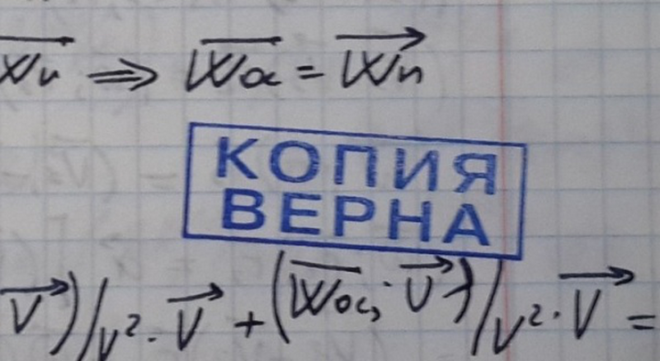 ⇒ Wос = Wп
КОПИЯ
ВЕРНА
V)/V²·V + (Wос; V)/V²·V =